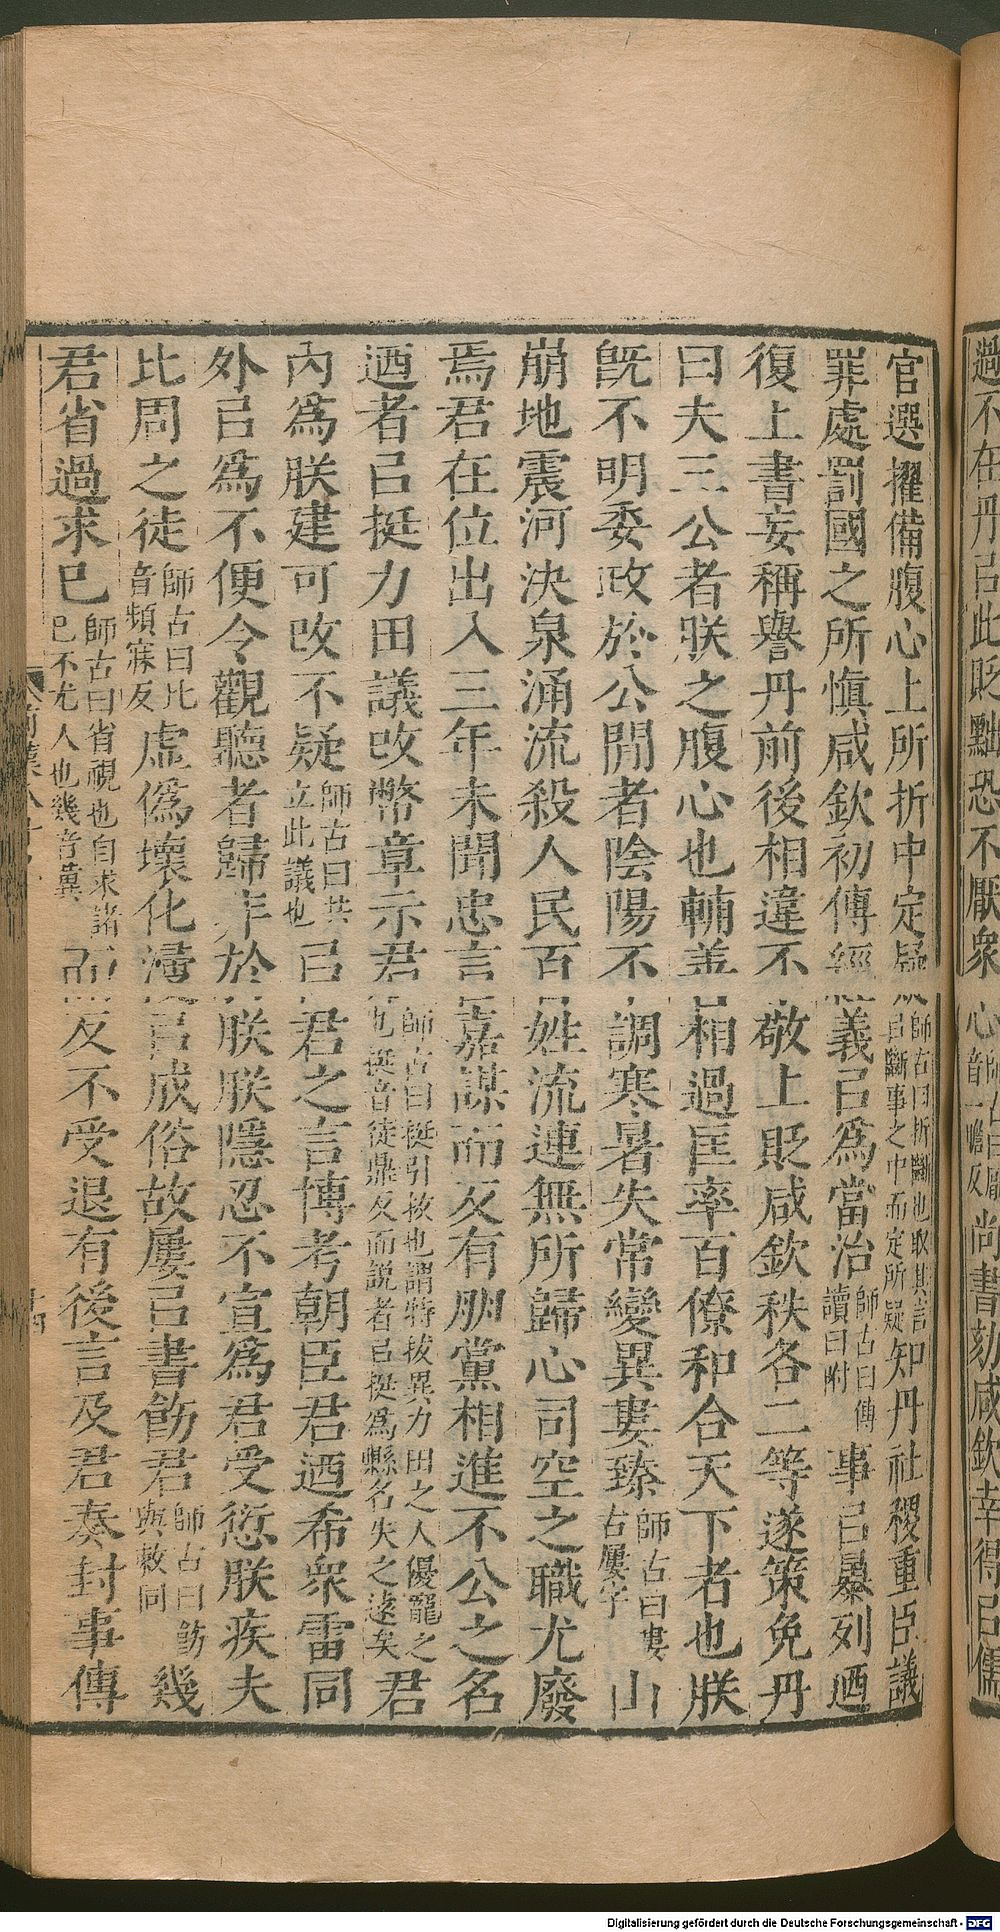 過不在丹㠯此貶黜恐不厭衆心師古曰厭音一瞻反尚書劾咸欽幸得㠯儒
官選擢備腹心上所折中定疑師古曰折斷也取其言㠯斷事之中而定所疑知丹社稷重臣議
罪處罰國之所慎咸欽初傳經義㠯爲當治師古曰傳讀曰附事㠯暴列迺
復上書妄稱譽丹前後相違不敬上貶咸欽秩各二等遂策免丹
曰夫三公者朕之腹心也輔善相過匡率百僚和合天下者也朕
旣不明委政於公閒者陰陽不調寒暑失常變異婁臻師古曰婁古屢字山
崩地震河決泉涌流殺人民百姓流連無所歸心司空之職尤廢
焉君在位出入三年未聞忠言嘉謀而反有朋黨相進不公之名
迺者㠯挺力田議改幣章示君師古曰挺引拔也謂特拔異力田之人優寵之也挺音徒鼎反而說者㠯挺爲縣名失之遠矣君
內爲朕建可改不疑師古曰共立此議也㠯君之言博考朝臣君迺希衆雷同
外㠯爲不便令觀聽者歸非於朕朕隱忍不宣爲君受愆朕疾夫
比周之徒師古曰比音頻寐反虛僞壞化㠯成俗故屢㠯書飭君師古曰飭與敕同幾
君省過求已師古曰省視也自求諸已不尤人也幾音冀而反不受退有後言及君奏封事傳
Digitalisierung gefördert durch die Deutsche Forschungsgemeinschaft - DFG